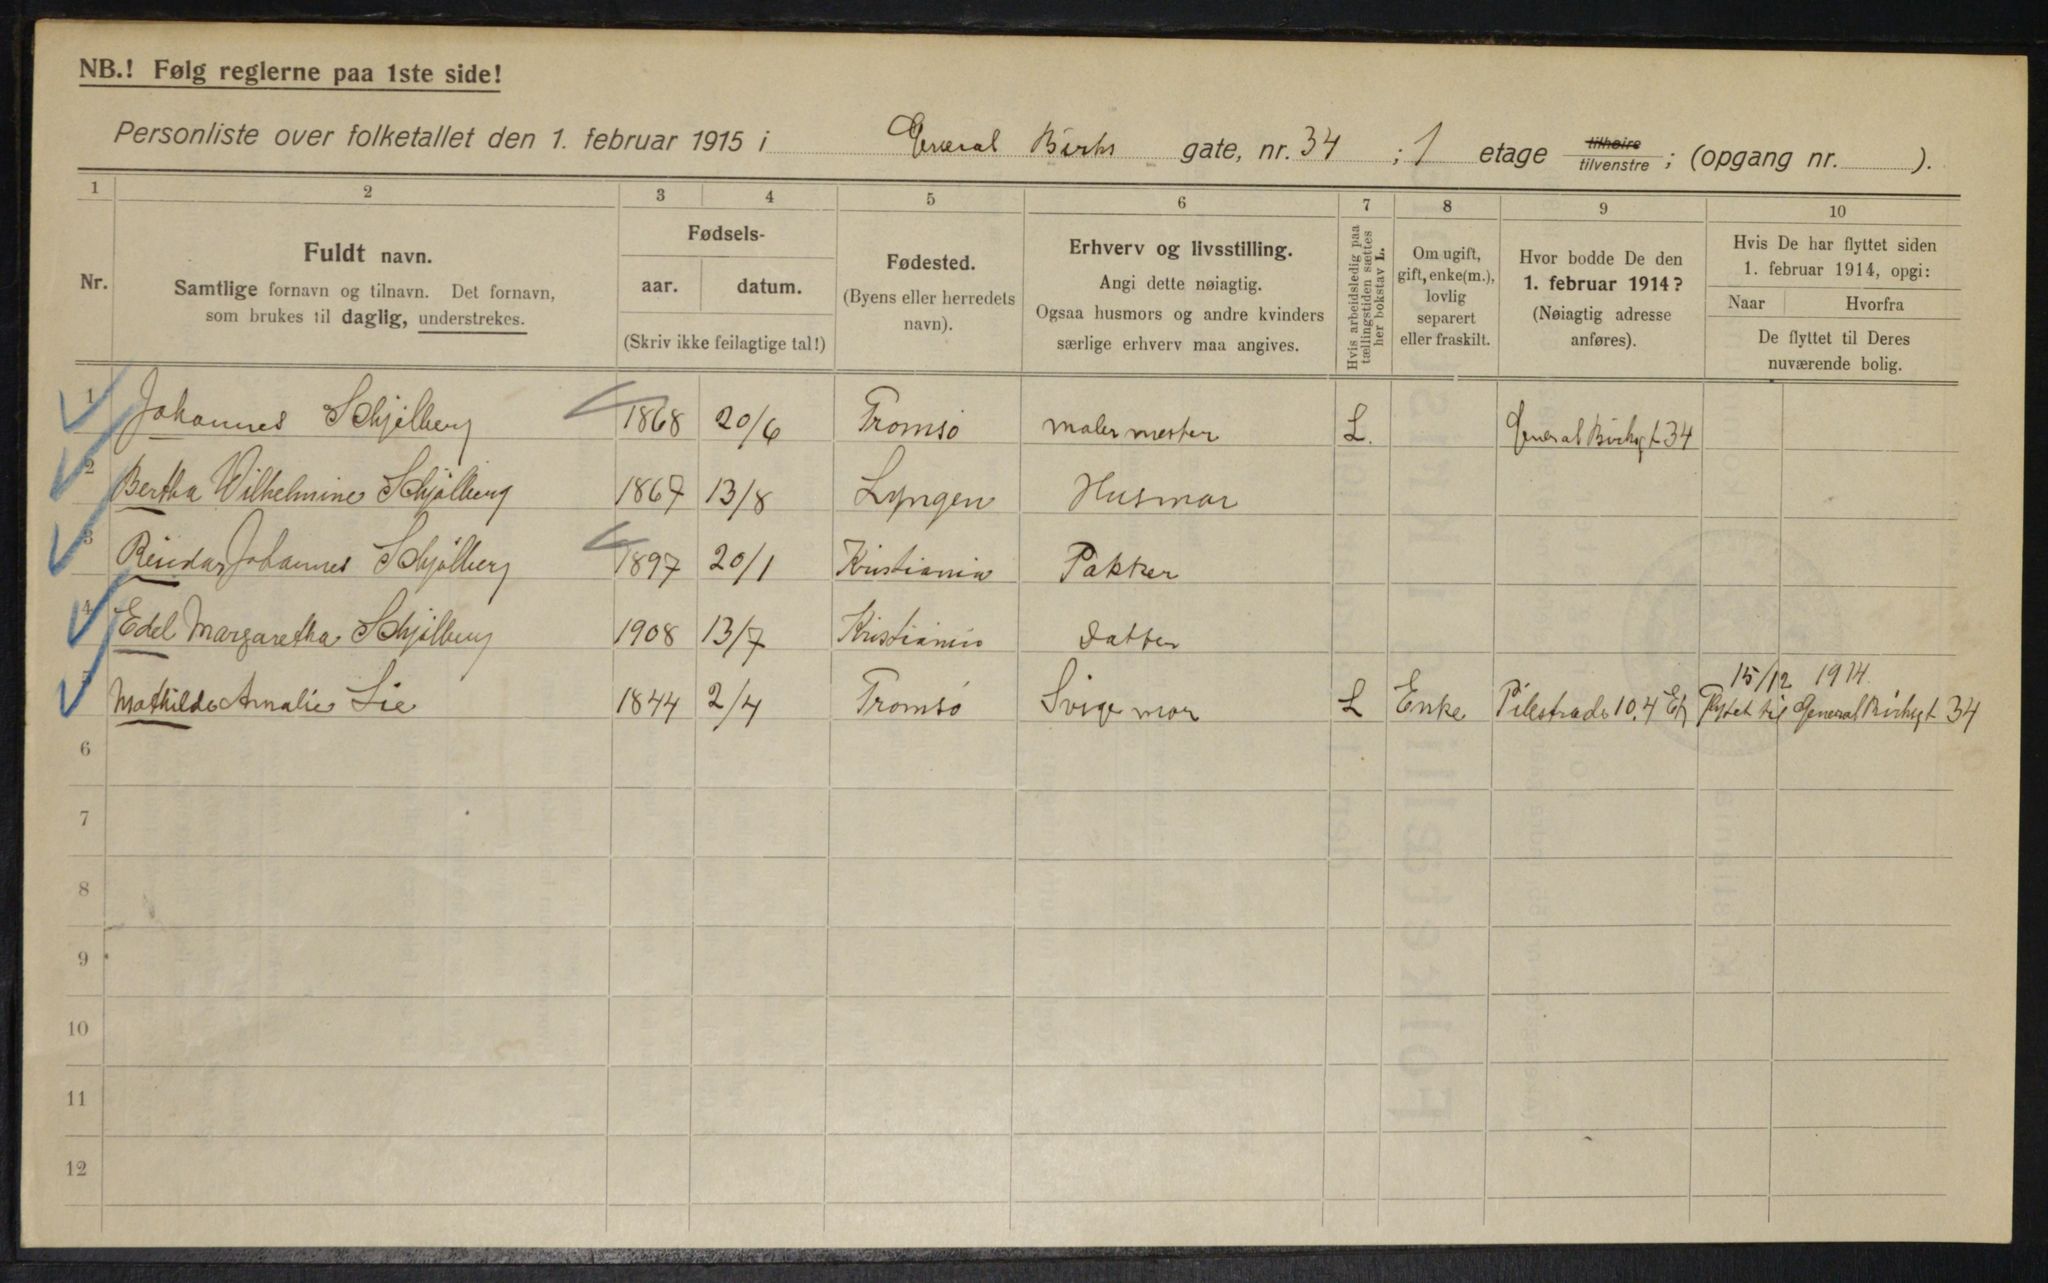 NB.! Følg reglerne paa 1ste side!
Personliste over folketallet den 1. februar 1915 i General Birks gate, nr. 34 ; 1 etage tilhøire tilvenstre ; (opgang nr. ).
1 2 3 4 5 6 7 8 9 10
Nr.
Fuldt navn.
Samtlige fornavn og tilnavn. Det fornavn,
som brukes til daglig, understrekes.
Fødsels-
aar. datum.
(Skriv ikke feilagtige tal!)
Fødested.
(Byens eller herredets
navn).
Erhverv og livsstilling.
Angi dette nøiagtig.
Ogsaa husmors og andre kvinders
særlige erhverv maa angives.
Hvis arbeidsledig paa
tællingstiden sættes
her bokstav L.
Om ugift,
gift, enke(m.),
lovlig
separert
eller fraskilt.
Hvor bodde De den
1. februar 1914?
(Nøiagtig adresse
anføres).
Hvis De har flyttet siden
1. februar 1914, opgi:
Naar Hvorfra
De flyttet til Deres
nuværende bolig.
1 Johannes Schjølberg 1868 20/6 Tromsø maler mester L. General Birksgt 34
2 Bertha Wilhelmine Schjølberg 1867 13/8 Lyngen Husmor
3 Reidar Johannes Schjølberg 1897 20/1 Kristiania Pakker
4 Edel Margaretha Schjølberg 1908 13/7 Kristiania datter
15/12 1914.
5 Mathilde Amalie Lie 1844 2/4 Tromsø Svigemor L Enke Pilestrade 10. 4 Et Flytet til General Birksgt 34
6
7
8
9
10
11
12